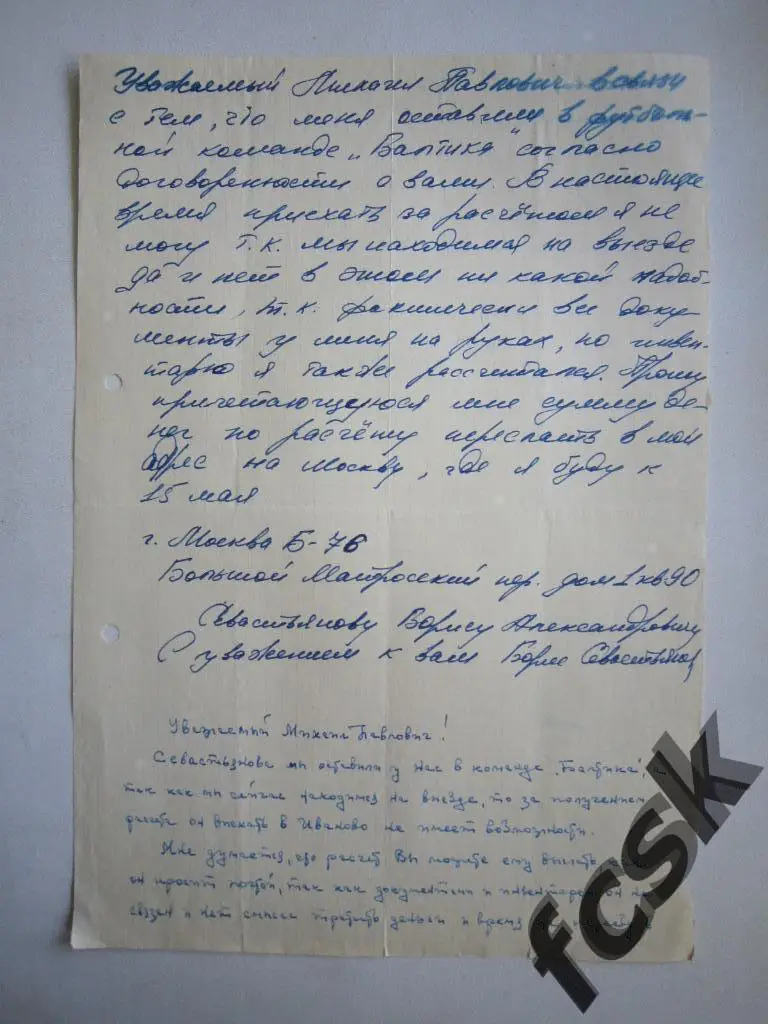 Уважаемый Михаил Павлович в связи
с тем, что меня оставили в футболь-
ной команде „Балтика" согласно
договоренности с вами. В настоящее
время приехать за расчётом я не
могу т.к. мы находимся на выезде
да и нет в этом ни какой надоб-
ности, т.к. фактически все доку-
менты у меня на руках, по инвен-
тарю я также рассчитался. Прошу
причетающуюся мне сумму де-
нег по расчёту переслать в мой
адрес на Москву, где я буду к
15 мая
г. Москва Б-76
Большой Матросский пер. дом 1 кв 90
Севастьянову Борису Александровичу
С уважением к вам Борис Севастьянов
Уважаемый Михаил Павлович!
Севастьянова мы оставили у нас в команде „Балтика", а
так как мы сейчас находимся на выезде, то за получением
расчета он выехать в Иваново не имеет возможности.
Мне думается, что расчет Вы можете ему выслать
он просит почтой, так как документами и инвентарем он не
связан и нет смысла тратить деньги и время
fcsk